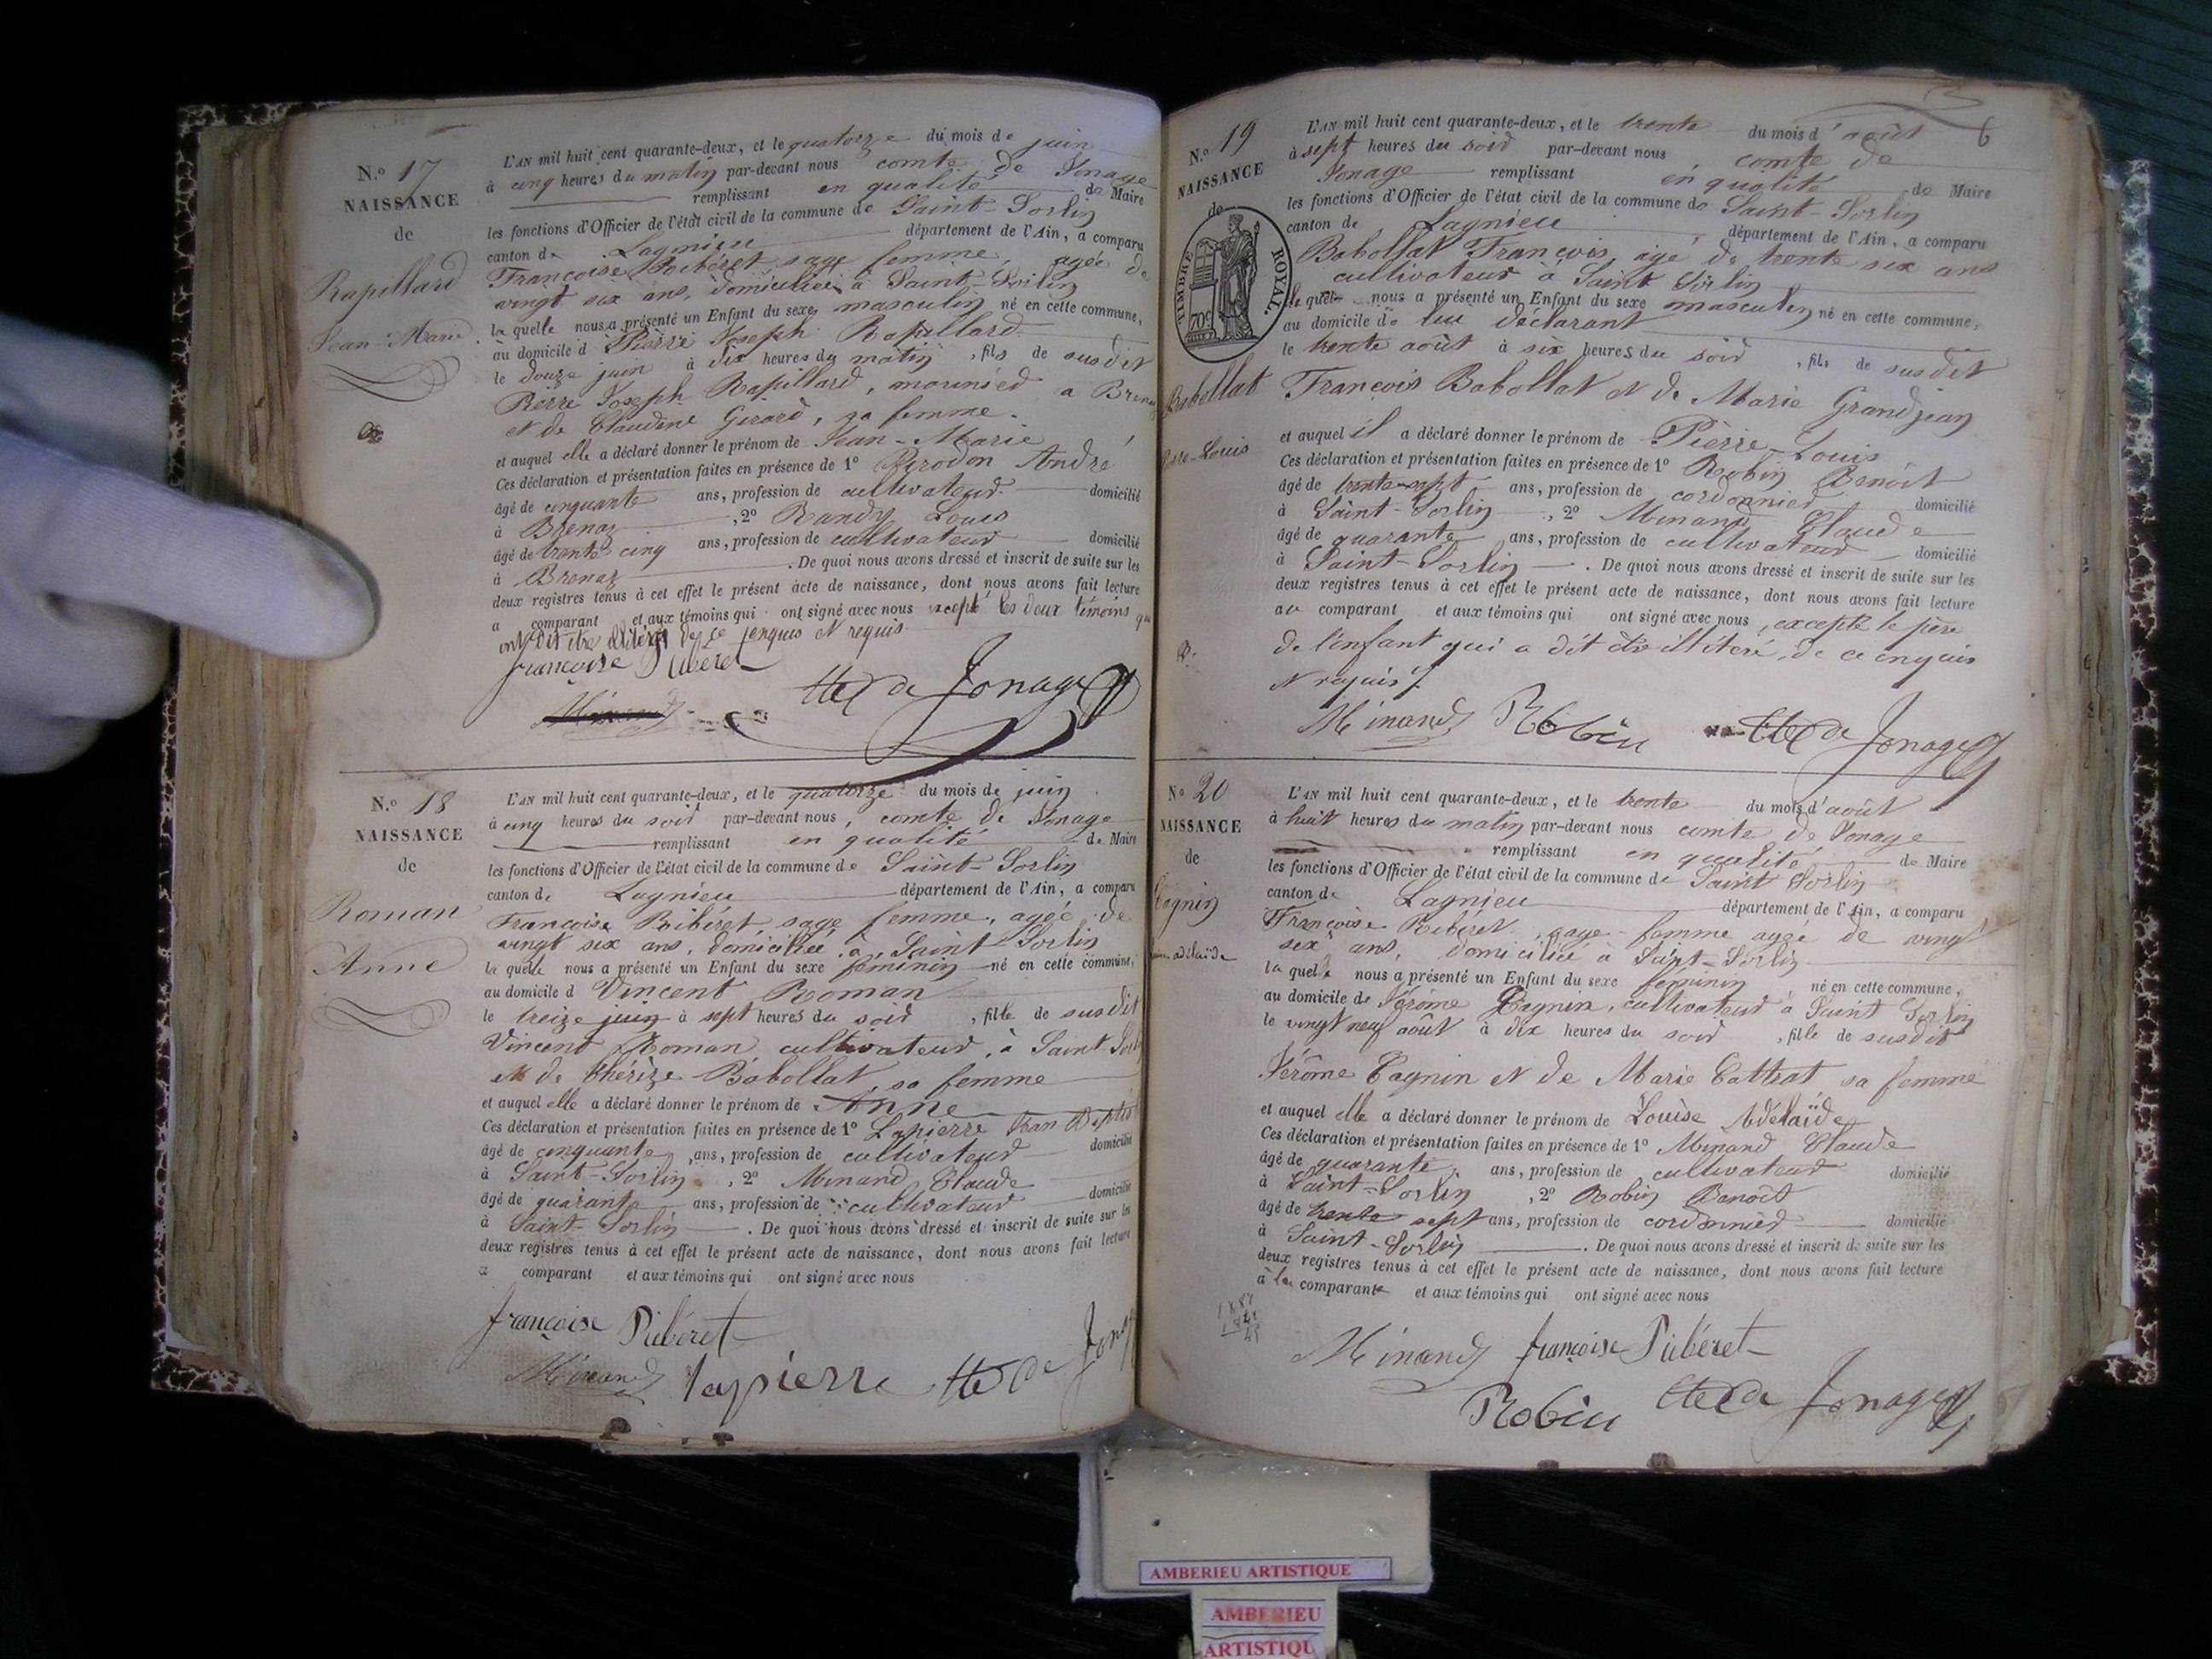 N.º 17
NAISSANCE
de
Rapillard
Jean-Marie
L'AN mil huit cent quarante-deux, et le quatorze du mois de juin
à cinq heures du matin par-devant nous comte de Jonage
remplissant en qualité de Maire
les fonctions d'Officier de l'état civil de la commune de Saint-Sorlin
canton de Lagnieu département de l'Ain, a comparu
Françoise Pibéret sage femme, agée de
vingt six ans, domiciliée à Saint-Sorlin
la quelle nous a présenté un Enfant du sexe masculin né en cette commune,
au domicile d Pierre Joseph Rapillard
le douze juin à dix heures du matin, fils de susdit
Pierre Joseph Rapillard, mounier a Brenaz
et de Claudine Girard, sa femme.
et auquel elle a déclaré donner le prénom de Jean-Marie
Ces déclaration et présentation faites en présence de 1º Perodon André
âgé de cinquante ans, profession de cultivateur domicilié
à Brenaz, 2º Randy Louis
âgé de trente cinq ans, profession de cultivateur domicilié
à Brenaz. De quoi nous avons dressé et inscrit de suite sur les
deux registres tenus à cet effet le présent acte de naissance, dont nous avons fait lecture
a comparant et aux témoins qui ont signé avec nous excepté les deux témoins qui
ont dit être illitérés de ce enquis et requis.
françoise Pibéret
Minand Cte de Jonage
N.º 18
NAISSANCE
de
Roman
Anne
L'AN mil huit cent quarante-deux, et le quatorze du mois de juin
à cinq heures du soir par-devant nous, comte de Jonage
remplissant en qualité de Maire
les fonctions d'Officier de l'état civil de la commune de Saint-Sorlin
canton de Lagnieu département de l'Ain, a comparu
Françoise Pibéret, sage femme, agée de
vingt six ans, domiciliée à Saint Sorlin
la quelle nous a présenté un Enfant du sexe féminin né en cette commune,
au domicile d Vincent Roman
le treize juin à sept heures du soir, fille de susdit
Vincent Roman, cultivateur, à Saint-Sorlin
et de Thérèze Babollat, sa femme
et auquel elle a déclaré donner le prénom de Anne
Ces déclaration et présentation faites en présence de 1º Lapierre Jean Baptiste
âgé de cinquante ans, profession de cultivateur domicilié
à Saint-Sorlin, 2º Minand Claude
âgé de quarante ans, profession de cultivateur domicilié
à Saint-Sorlin. De quoi nous avons dressé et inscrit de suite sur les
deux registres tenus à cet effet le présent acte de naissance, dont nous avons fait lecture
a comparant et aux témoins qui ont signé avec nous
françoise Pibéret
Minand lapierre Cte de Jonage
6
N.º 19
NAISSANCE
de
TIMBRE ROYAL.
70c
Babollat
Pierre-Louis
L'AN mil huit cent quarante-deux, et le trente du mois d'août
à sept heures du soir par-devant nous, comte de
Jonage remplissant en qualité de Maire
les fonctions d'Officier de l'état civil de la commune de Saint-Sorlin
canton de Lagnieu département de l'Ain, a comparu
Babollat François, agé de trente six ans
cultivateur à Saint Sorlin
le quel nous a présenté un Enfant du sexe masculin né en cette commune,
au domicile de lui déclarant
le trente août à six heures du soir, fils de susdit
François Babollat et de Marie Grandjean
et auquel il a déclaré donner le prénom de Pierre-Louis
Ces déclaration et présentation faites en présence de 1º Robin Benoit
âgé de trente-sept ans, profession de cordonnier domicilié
à Saint-Sorlin, 2º Minand Claude
âgé de quarante ans, profession de cultivateur domicilié
à Saint-Sorlin. De quoi nous avons dressé et inscrit de suite sur les
deux registres tenus à cet effet le présent acte de naissance, dont nous avons fait lecture
au comparant et aux témoins qui ont signé avec nous, excepté le père
de l'enfant qui a dit être illitéré, de ce enquis
et requis.
Minand Robin Cte de Jonage
Nº 20
NAISSANCE
de
Cagnin
Louise adelaïde
L'AN mil huit cent quarante-deux, et le trente du mois d'août
à huit heures du matin par-devant nous comte de Jonage
remplissant en qualité de Maire
les fonctions d'Officier de l'état civil de la commune de Saint Sorlin
canton de Lagnieu département de l'Ain, a comparu
Françoise Pibéret, sage-femme agée de vingt
six ans, domiciliée à Saint-Sorlin
la quelle nous a présenté un Enfant du sexe féminin né en cette commune,
au domicile de Jérôme Cagnin, cultivateur à Saint Sorlin
le vingt neuf août à dix heures du soir, fille de susdit
Jérôme Cagnin et de Marie Cattrat sa femme
et auquel elle a déclaré donner le prénom de Louise Adélaïde
Ces déclaration et présentation faites en présence de 1º Minand Claude
âgé de quarante ans, profession de cultivateur domicilié
à Saint-Sorlin, 2º Robin Benoît
âgé de trente sept ans, profession de cordonnier domicilié
à Saint-Sorlin. De quoi nous avons dressé et inscrit de suite sur les
deux registres tenus à cet effet le présent acte de naissance, dont nous avons fait lecture
à la comparante et aux témoins qui ont signé avec nous
Minand françoise Pibéret
Robin Cte de Jonage
AMBERIEU ARTISTIQUE
AMBERIEU
ARTISTIQU